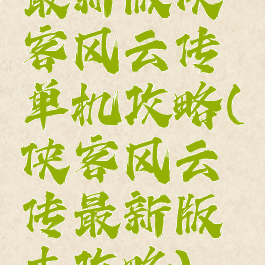 最新版侠
客风云传
单机攻略(
侠客风云
传最新版
本攻略)